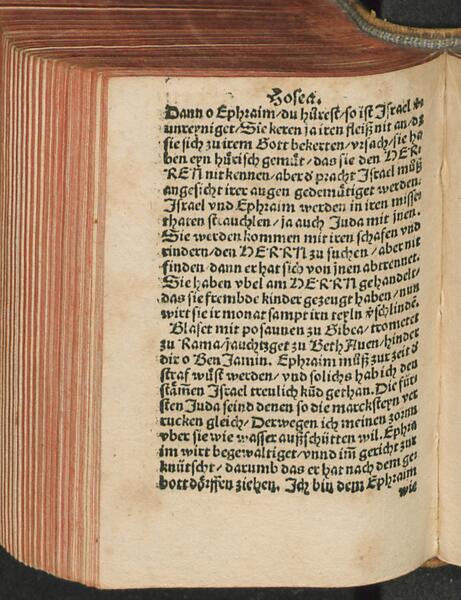 Hosea.
Dann o Ephraim/du hůrest/so ist Israel
unreyniget/Sie keren ja iren fleiß nit an/
sie sich zu irem Gott bekerten/vrsach/sie ha
ben eyn hůrisch gemůt/das sie den HER
REN nit kennen/aber pracht Israel můß
angesicht irer augen gedemůtiget werden.
Israel vnd Ephraim werden in iren misse
thaten strauchlen/ja auch Juda mit jnen.
Sie werden kommen mit iren schafen vnd
rindern/den HERRN zu suchen/aber nit
finden/dann er hat sich von jnen abtrennet.
Sie haben vbel am HERRN gehandelt/
das sie frembde kinder gezeugt haben/nun
wirt sie ir monat sampt irn teyln
Blaset mit posaunen zu Gibea/trometet
zu Rama/jauchtzget zu BethAuen/hinder
dir o BenJamin. Ephraim můß zur zeit
straf wůst werden/vnd solichs hab ich den
stām̄en Israel treulich kūd gethan. Die für
sten Juda seind denen so die marcksteyn ver
rucken gleich/Derwegen ich meinen zorn
vber sie wie wasser außschütten wil. Ephra
im wirt begewaltiget/vnnd im̄ gericht zur
knütscht/darumb das er hat nach dem ge
bott dörffen ziehen. Ich bin dem Ephraim
wie